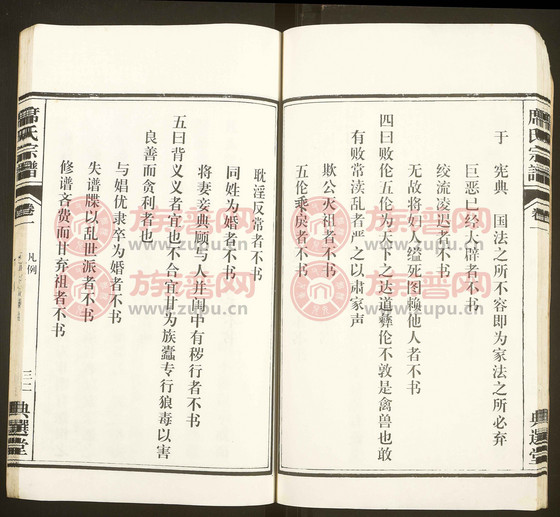 于　宪典　国法之所不容即为家法之所必弃
巨恶已经人辟者不书
绞流凌迟者不书
无故将妇人缢死图赖他人者不书
四曰败伦五伦为天下之达道彝伦不敦是禽兽也敢
有败常渎乱者严之以肃家声
欺公灭祖者不书
五伦乘戾者不书
耽淫反常者不书
同姓为婚者不书
将妻妾典顾与人并闺中有秽行者不书
五曰背义义者宜也不合宜甘为族蠹专行狼毒以害
良善而贪利者也
与娼优隶卒为婚者不书
失谱牒以乱世派者不书
修谱吝费而甘弃祖者不书
席氏宗谱
卷一
凡例
三二
典选堂
席氏宗谱
典选堂
族谱网
www.zupu.cn
族谱网
www.zupu.cn
族谱网
www.zupu.cn
族谱网
www.zupu.cn